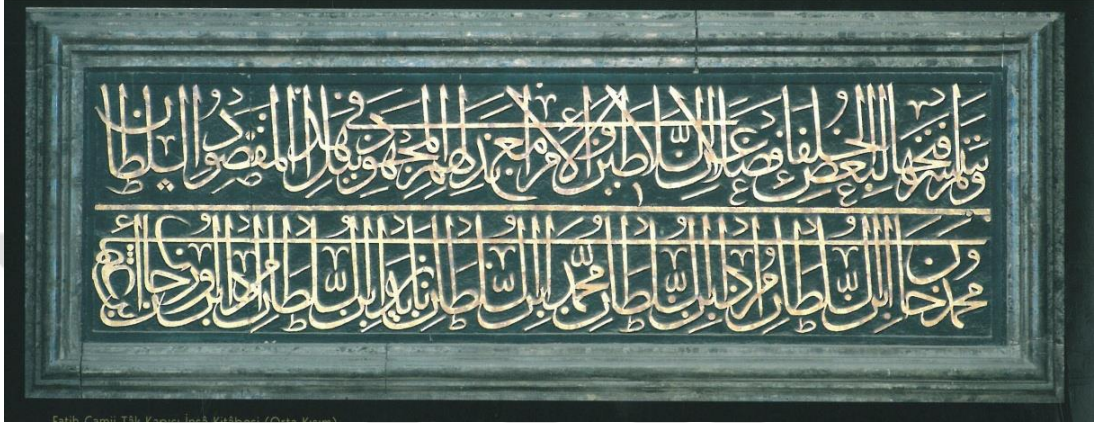 ولم يتيسر فتحها لبعض الخلفا فضلا عن السلاطين والامرا مع بذلهم المجهود في نيل هذا المقصود السلطان
محمد خان ابن السلطان مراد ابن السلطان محمد ابن السلطان بايزيد ابن السلطان مراد ابن اورخان
Fatih Camii Tâk Kapısı İnşâ Kitâbesi (Orta Kısım)